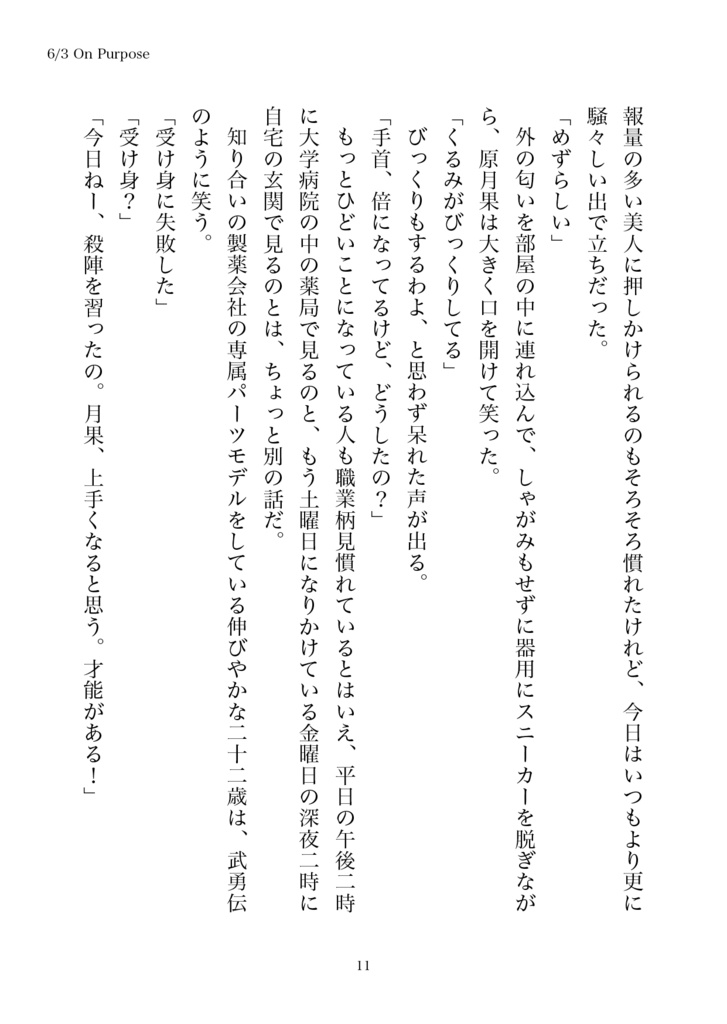 6/3 On Purpose
報量の多い美人に押しかけられるのもそろそろ慣れたけれど、今日はいつもより更に
騒々しい出で立ちだった。
「めずらしい」
　外の匂いを部屋の中に連れ込んで、しゃがみもせずに器用にスニーカーを脱ぎなが
ら、原月果は大きく口を開けて笑った。
「くるみがびっくりしてる」
　びっくりもするわよ、と思わず呆れた声が出る。
「手首、倍になってるけど、どうしたの？」
　もっとひどいことになっている人も職業柄見慣れているとはいえ、平日の午後二時
に大学病院の中の薬局で見るのと、もう土曜日になりかけている金曜日の深夜二時に
自宅の玄関で見るのとは、ちょっと別の話だ。
　知り合いの製薬会社の専属パーツモデルをしている伸びやかな二十二歳は、武勇伝
のように笑う。
「受け身に失敗した」
「受け身？」
「今日ねー、殺陣を習ったの。月果、上手くなると思う。才能がある！」
11